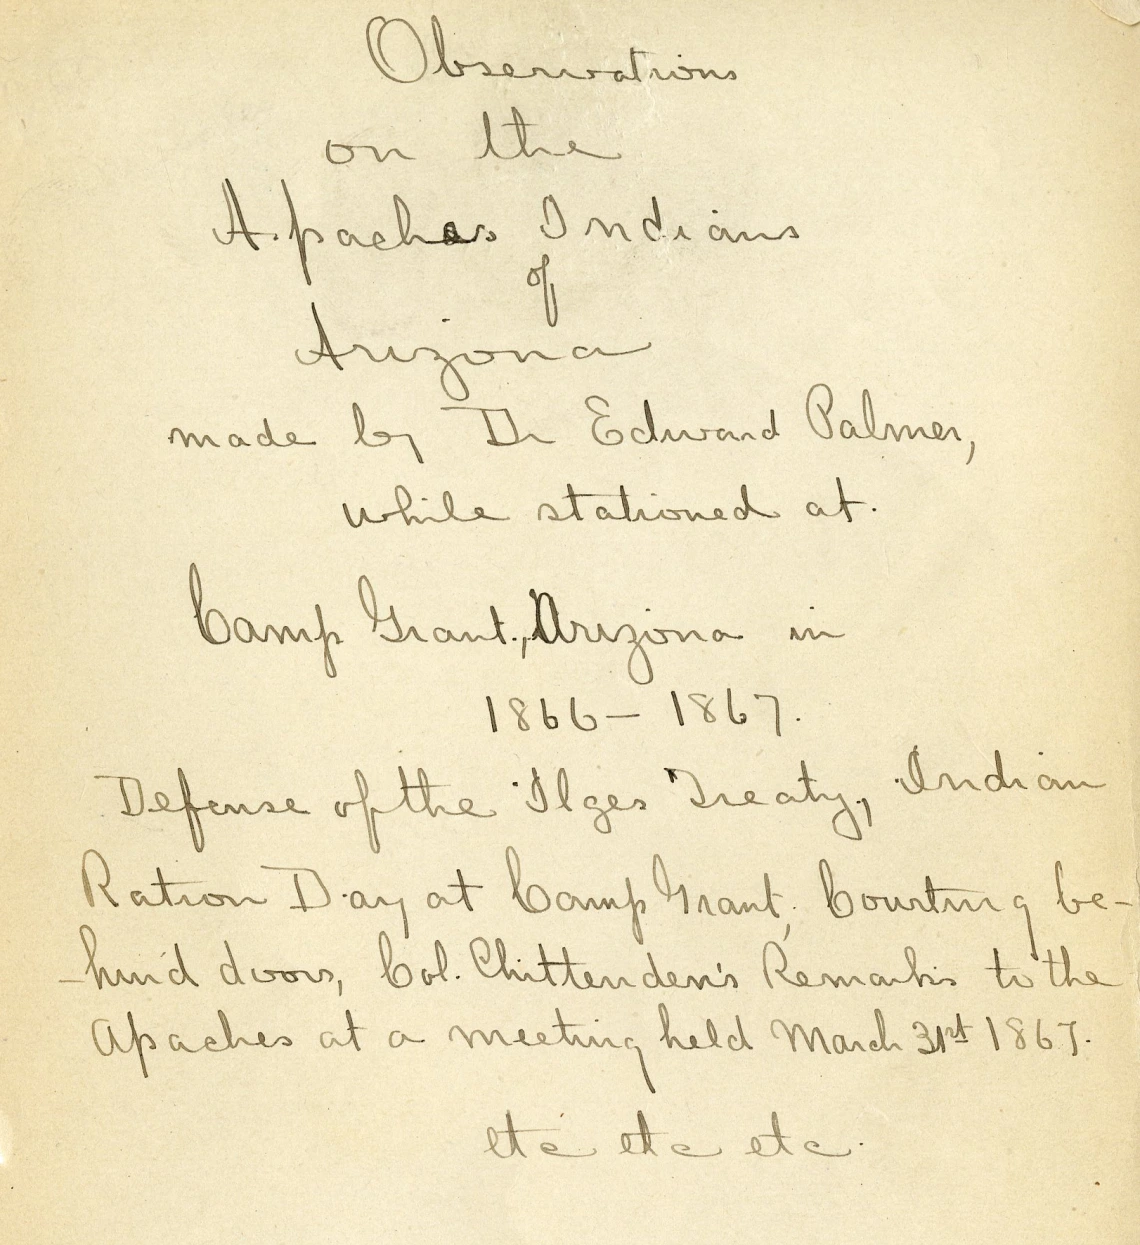 Observations
on the
Apaches Indians
of
Arizona
made by Dr Edward Palmer,
while stationed at.
Camp Grant., Arizona in
1866 – 1867.
Defense of the Ilges Treaty, Indian
Ration Day at Camp Grant, Courting be-
-hind doors, Col. Chittenden's Remarks to the
Apaches at a meeting held March 31st 1867.
etc etc etc.